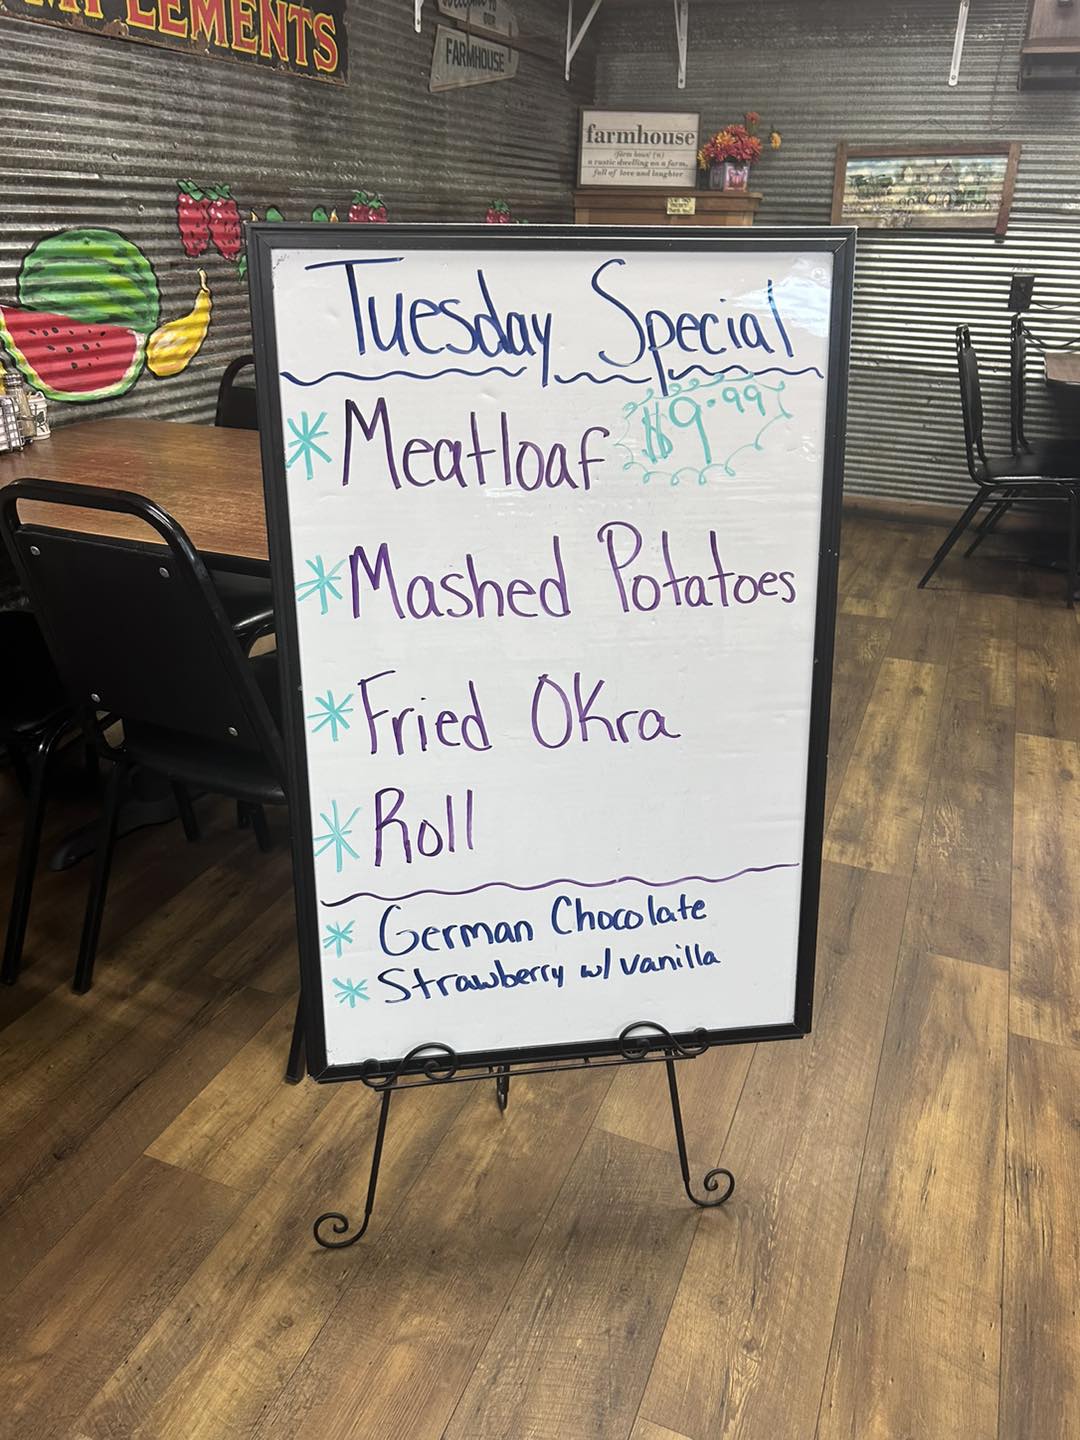 MPLEMENTS
OUR
FARMHOUSE
farmhouse
/färm hous/ (n)
a rustic dwelling on a farm,
full of love and laughter
Tuesday Special
* Meatloaf $9.99
* Mashed Potatoes
* Fried OKra
* Roll
* German Chocolate
* Strawberry w/ vanilla